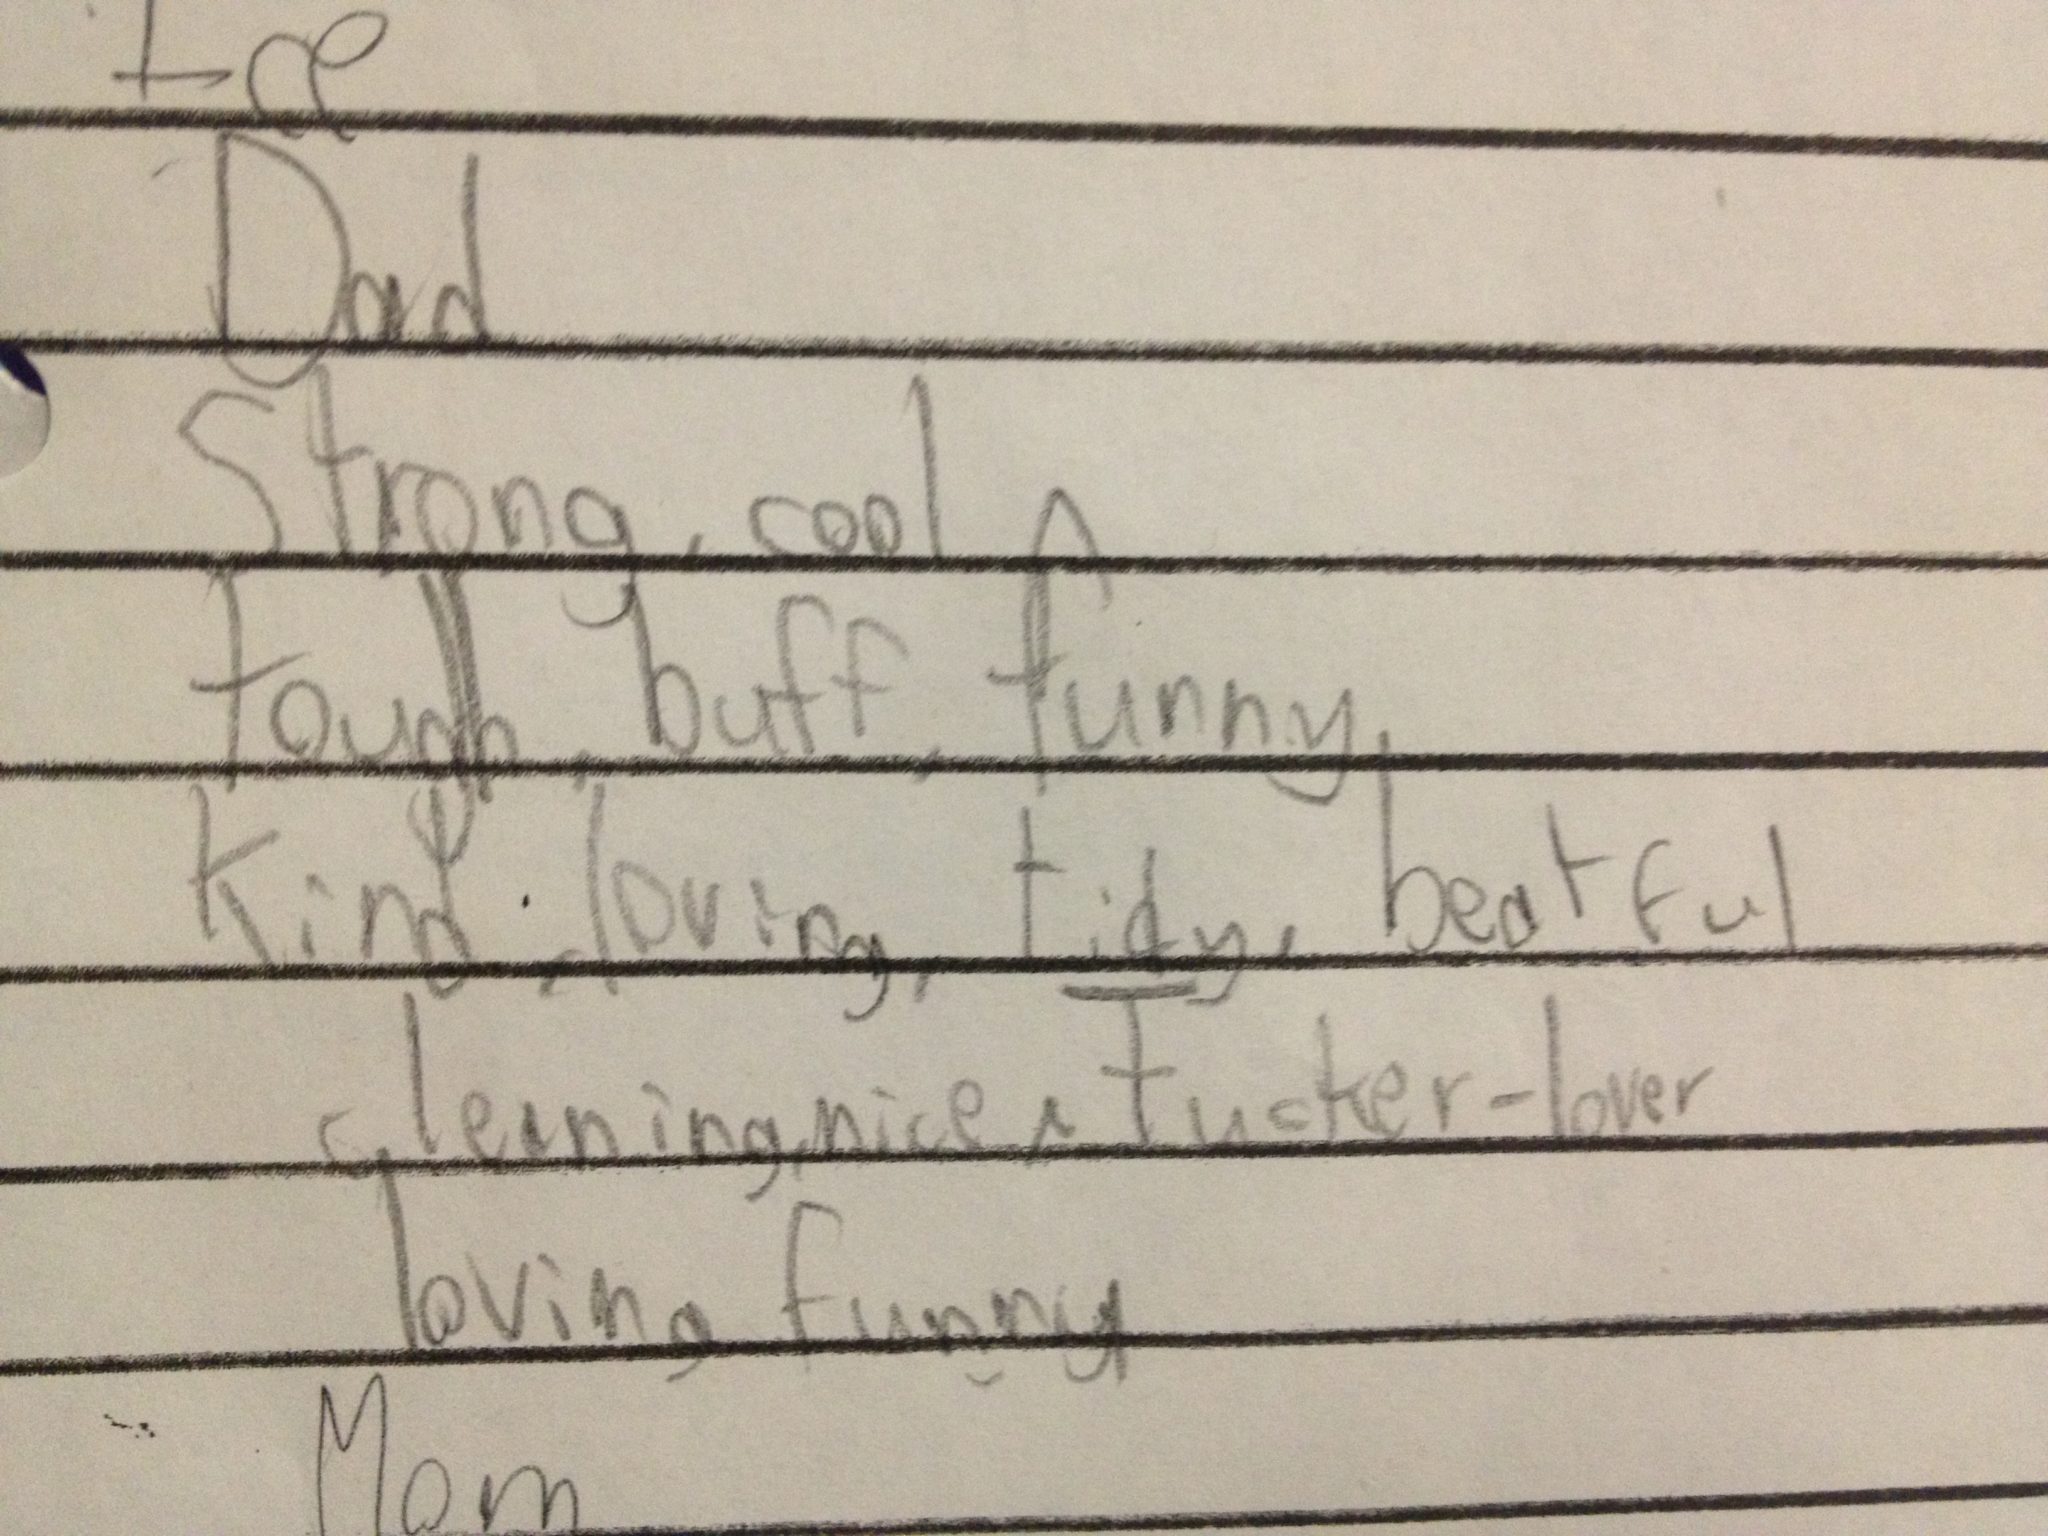 Dad
Strong, cool
tough, buff, funny,
Kind, loving, tidy, beatful
cleaning, nice, Tucker-lover
loving funny
Mom